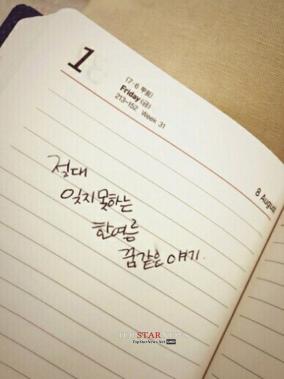 1
(7·6 무림)
Friday (금)
213-152 Week 31
8 August
절대
잊지못하는
한여름
꿈같은 얘기.
TOPSTAR
TopStarNews.Net